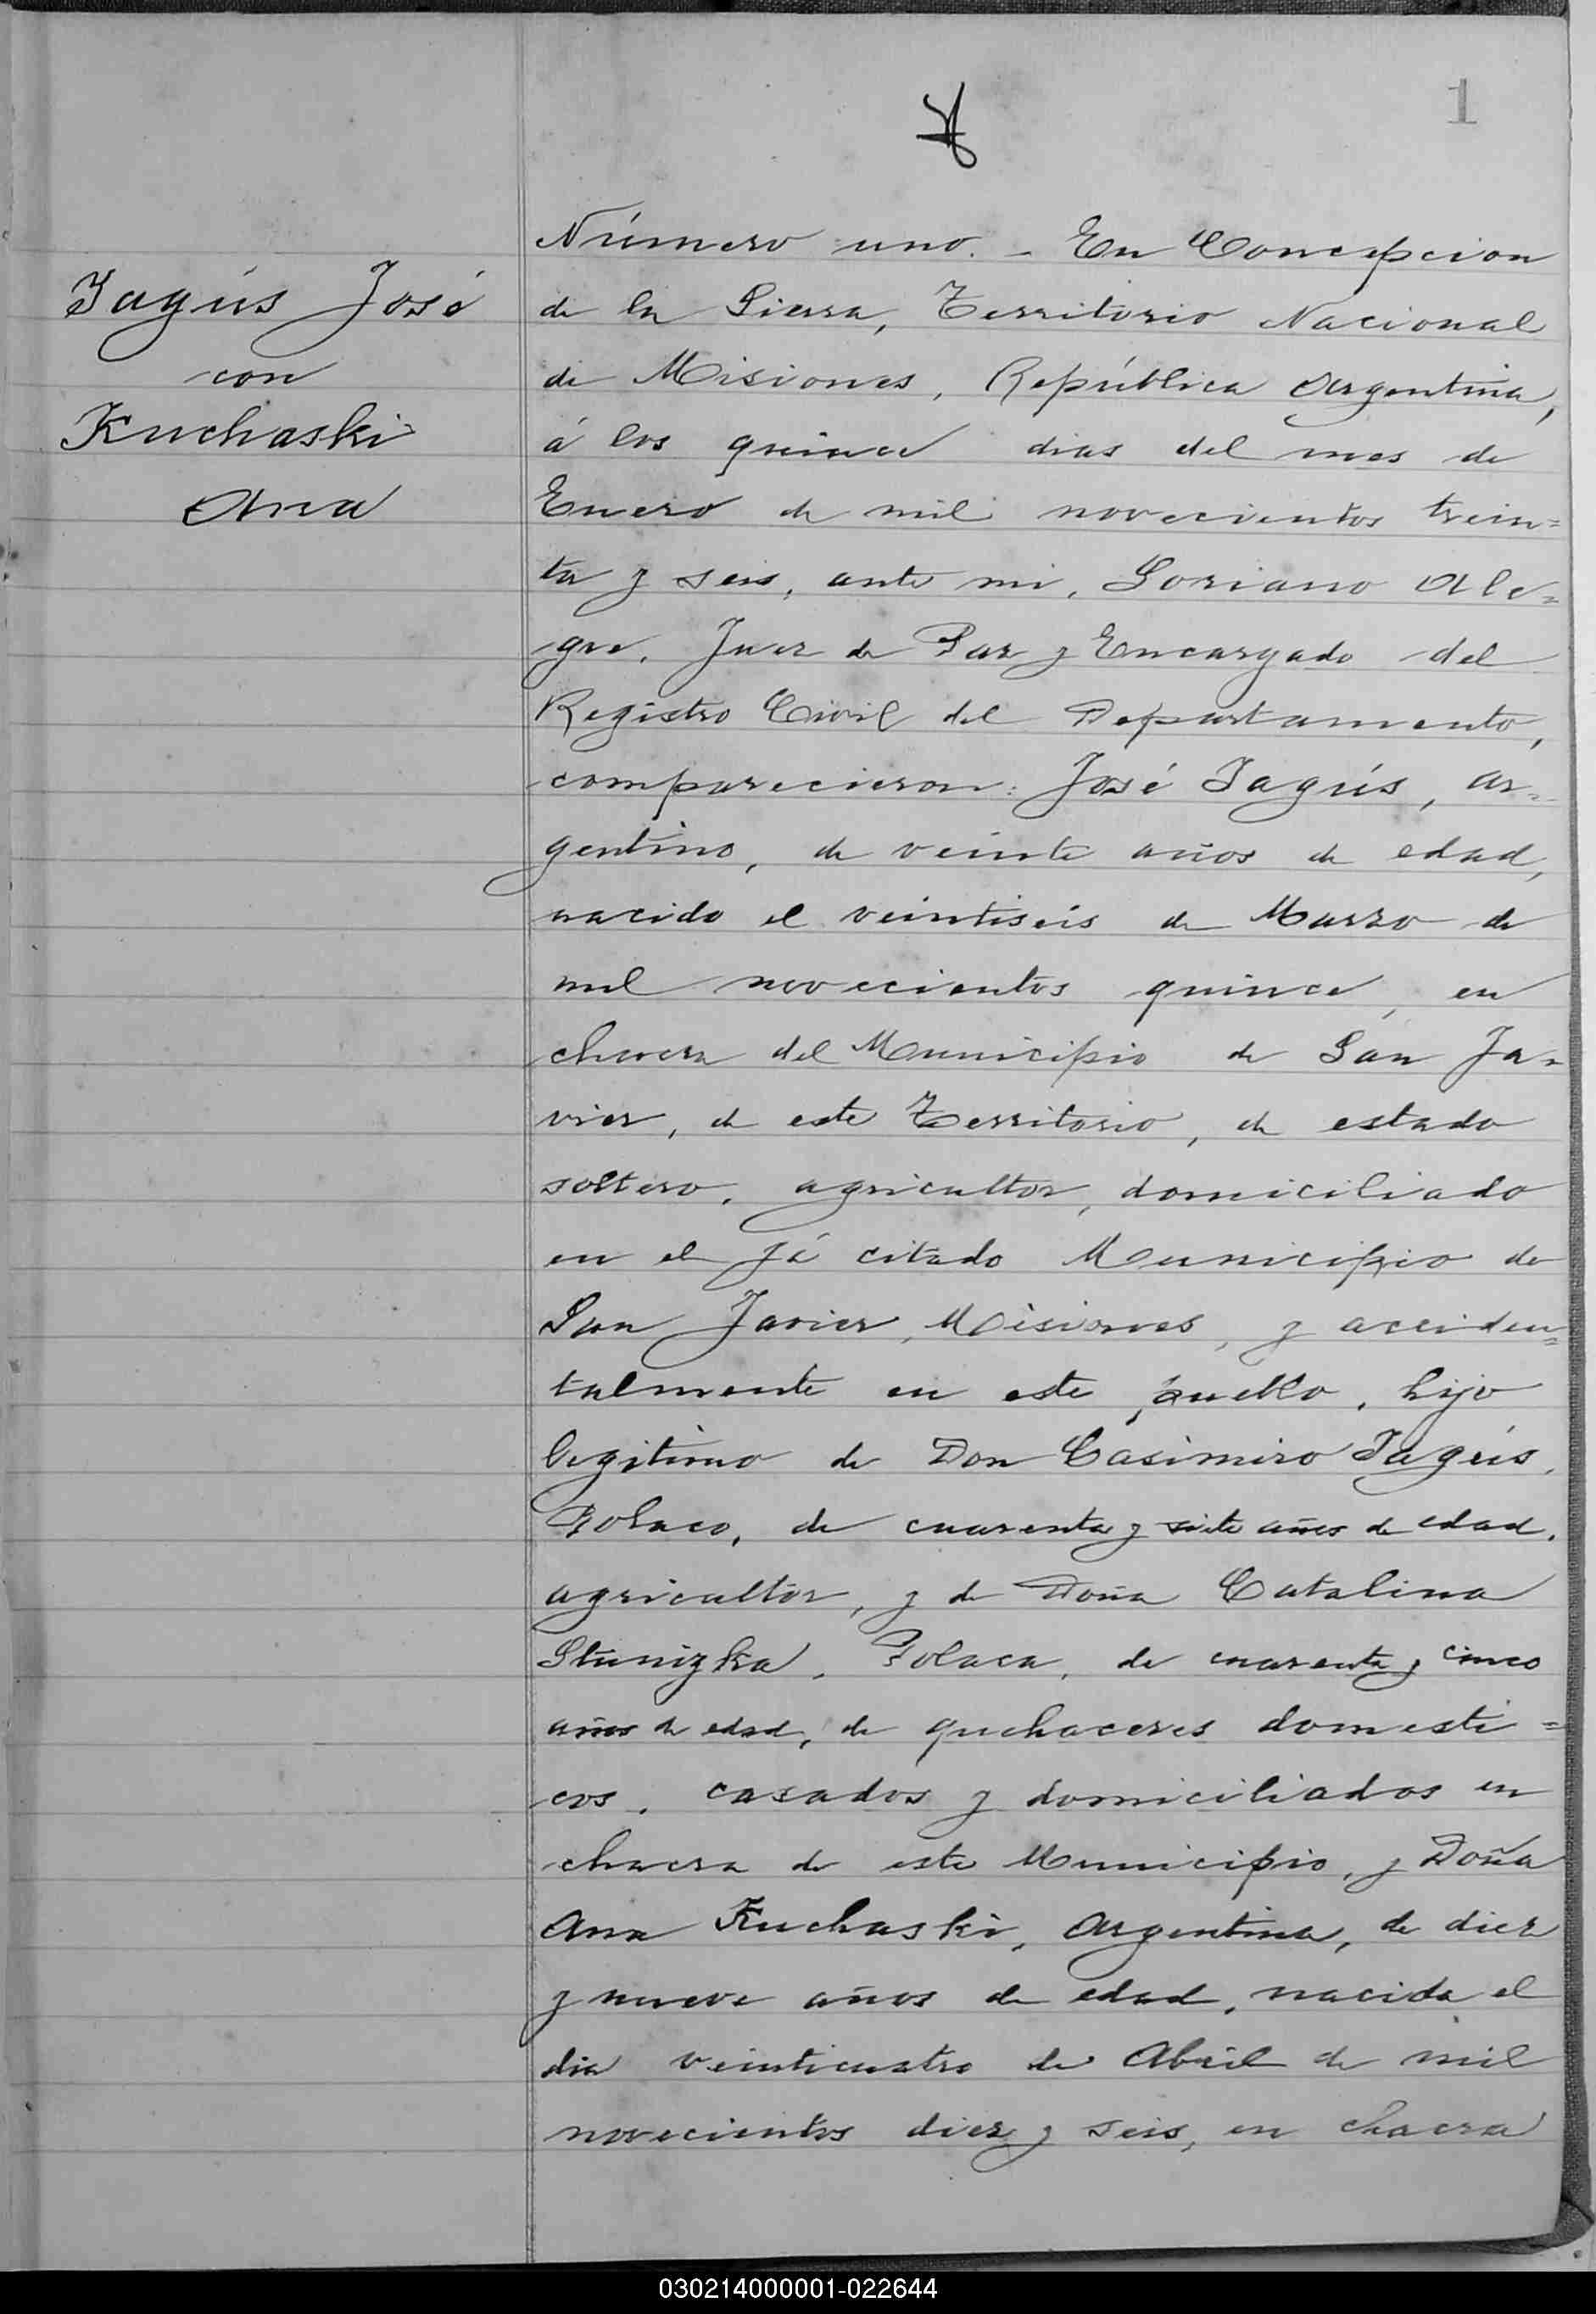 1
Jagús José
con
Kuchaski
Ana
Número uno. - En Concepcion
de la Sierra, Territorio Nacional
de Misiones, República Argentina,
á los quince dias del mes de
Enero de mil novecientos trein=
ta y seis, ante mi, Soriano Ale=
gre, Juez de Paz y Encargado del
Registro Civil del Departamento,
comparecieron: José Jagús, ar=
gentino, de veinte años de edad,
nacido el veintiseis de Marzo de
mil novecientos quince, en
chacra del Municipio de San Ja=
vier, de este Territorio, de estado
soltero, agricultor, domiciliado
en el já citado Municipio de
San Javier, Misiones, y acciden=
talmente en este pueblo, hijo
legitimo de Don Casimiro Jagús,
Polaco, de cuarenta y siete años de edad,
agricultor, y de Doña Catalina
Stunizka, Polaca, de cuarenta y cinco
años de edad, de quehaceres domesti=
cos, casados y domiciliados en
chacra de este Municipio, y Doña
Ana Kuchaski, Argentina, de diez
y nueve años de edad, nacida el
dia veinticuatro de Abril de mil
novecientos diez y seis, en chacra
030214000001-022644